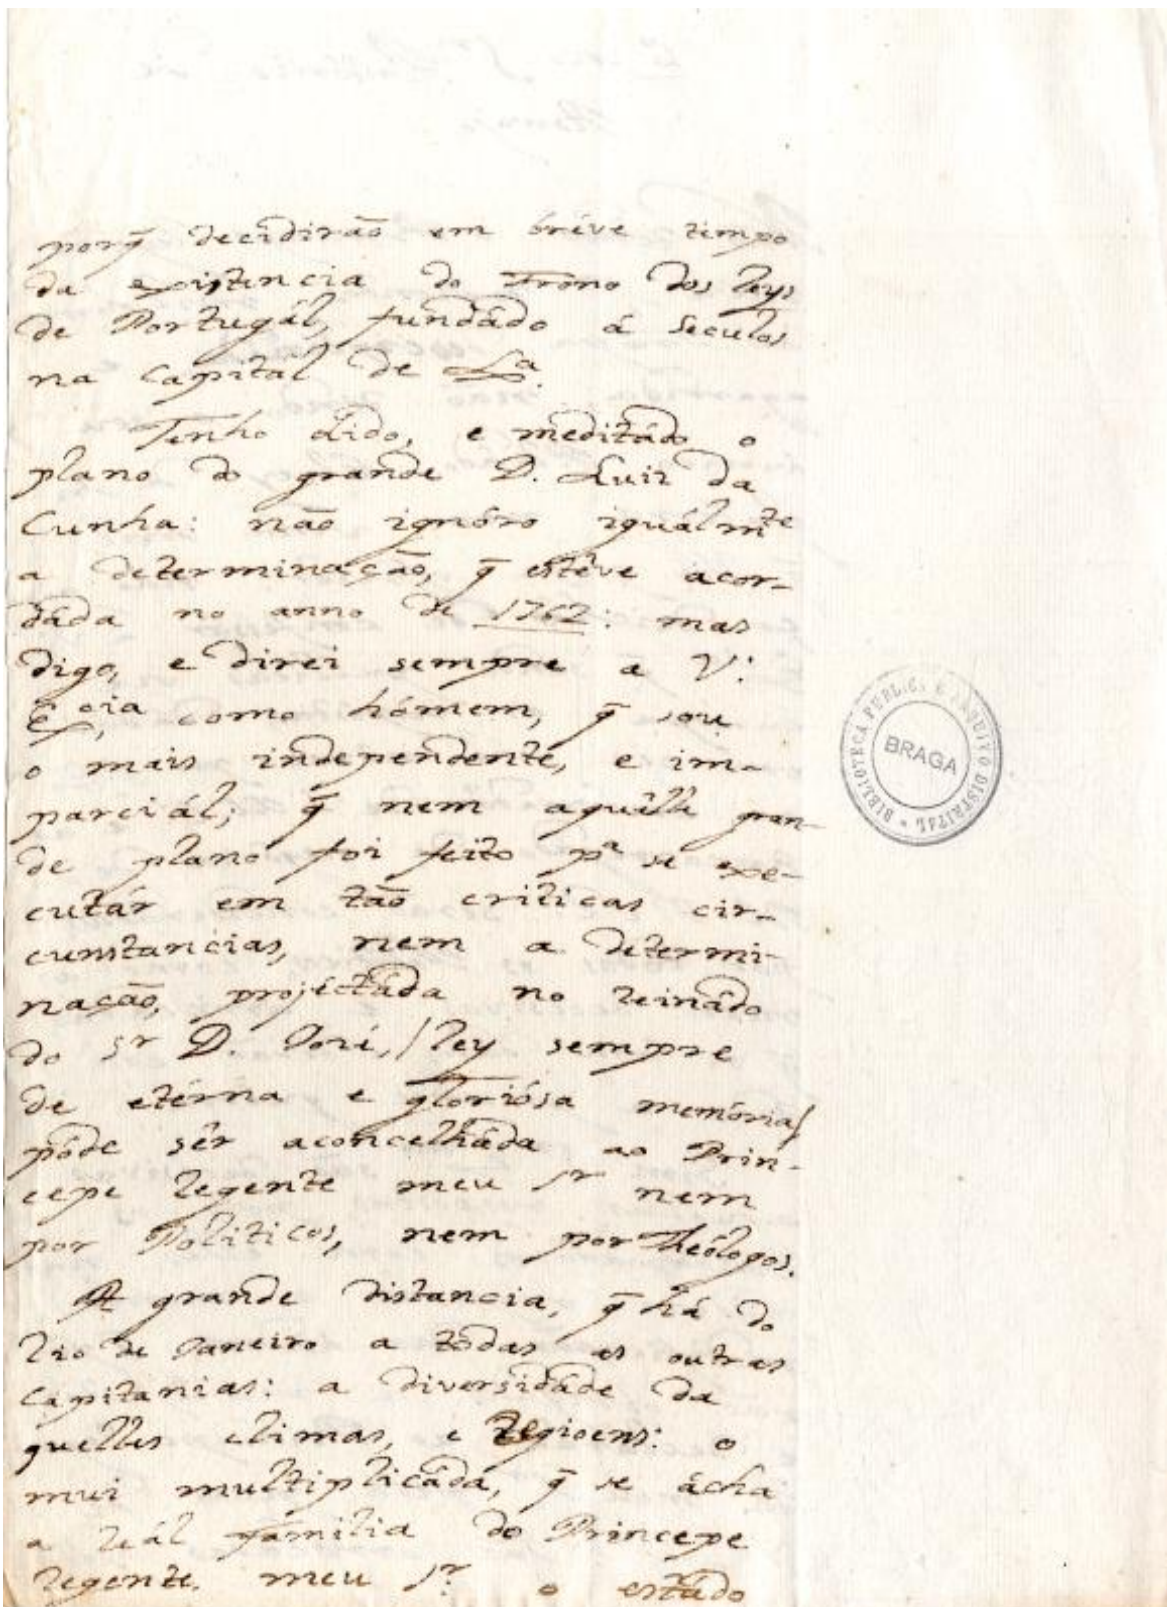 porq̃ decidirão em bréve tempo
da existencia do Trono dos Reys
de Portugál, fundádo á seculos
na Capitál de Lx.ª
Tenho Lido, e meditádo o
plano do grande D. Luiz da
Cunha: não ignóro iguálm.te
a determinação, q̃ estêve acor-
dáda no anno de 1762: mas
digo, e direi sempre a V.
Ex.cia, como hómem, q̃ sou
o mais independente, e im-
parciál; q̃ nem aquêlle gran-
de plano foi feito p.ª se exe-
cutár em tão criticas cir-
cunstancias, nem a determi-
nação, projectáda no Reinádo
do S.r D. José, /Rey sempre
de etérna e gloriósa memória/
póde sêr aconcelháda ao Prin-
cepe Regente meu S.r nem
por Politicos, nem por Theólogos.
A grande distancia, q̃ há do
Rio de Janeiro a tôdas as outras
Capitanias: a diversidáde da
quelles climas, e Regioens: o
mui multiplicáda, q̃ se ácha
a Reál família do Princepe
Regente meu S.r: o estádo
BIBLIOTECA PUBLICA E ARQUIVO DISTRITAL
BRAGA